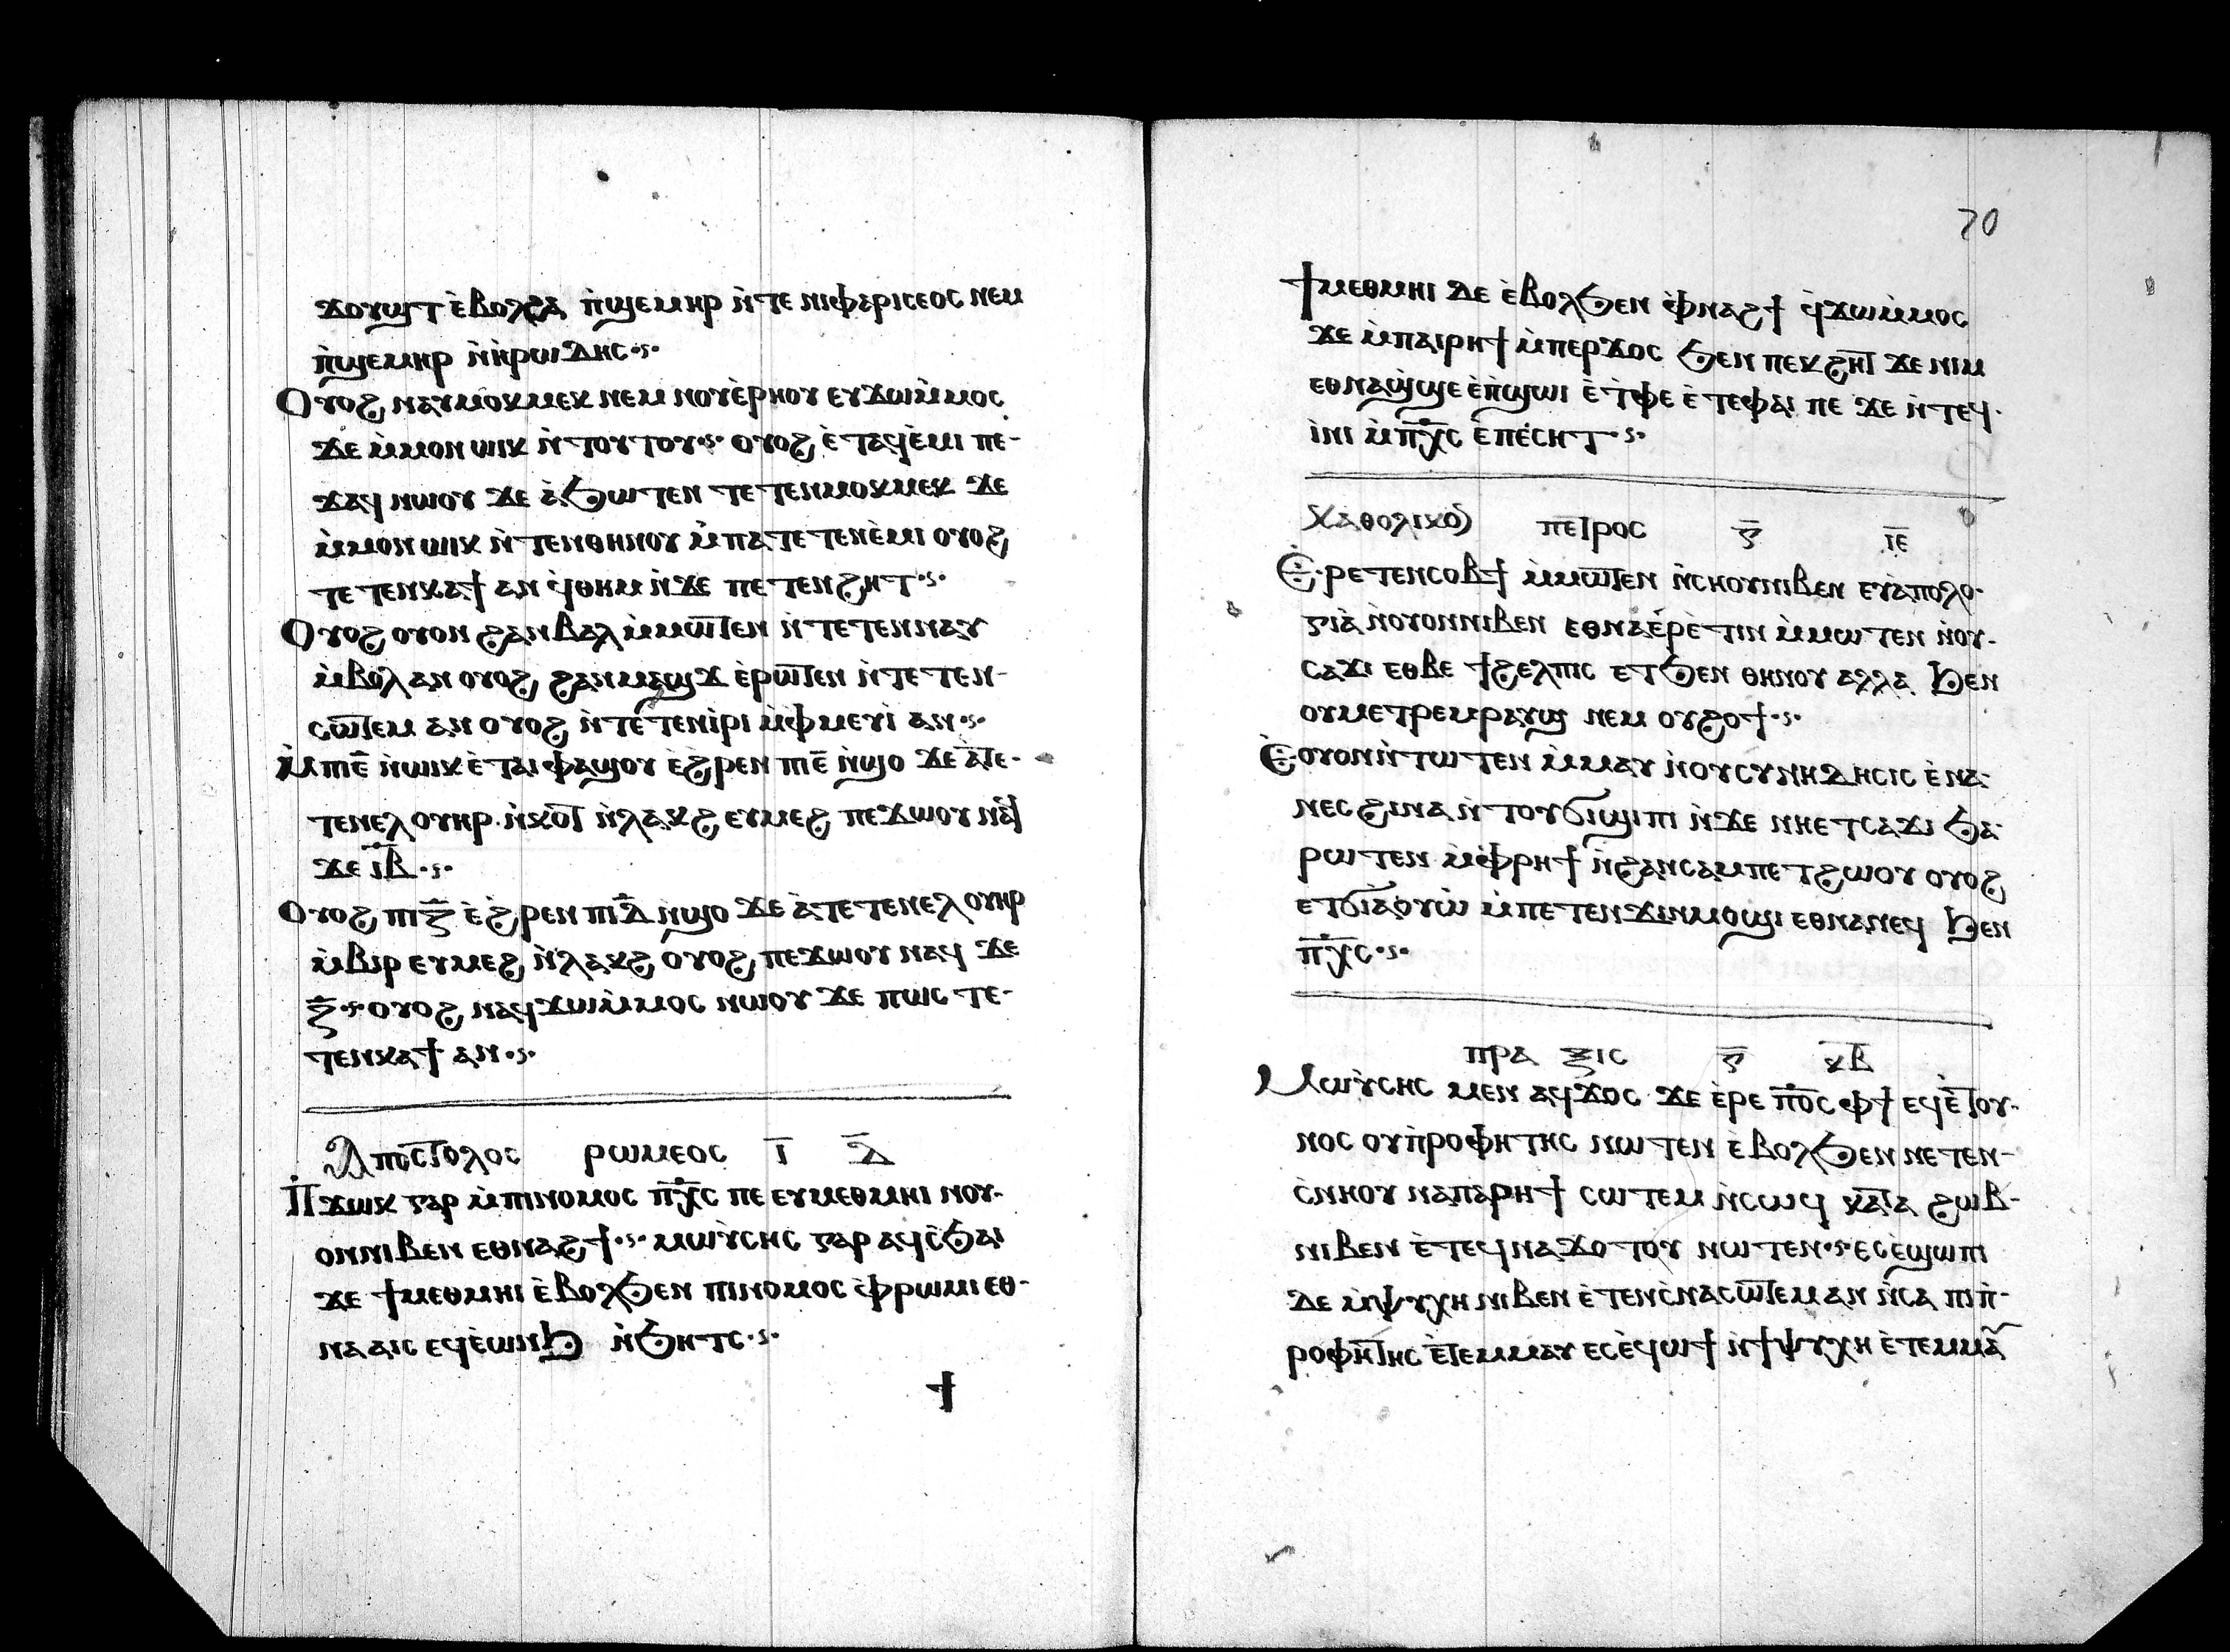 ϫⲟⲩϣⲧ ⲉ̀ⲃⲟⲗϩⲁ ⲡ̀ϣⲉⲙⲏⲣ ⲛ̀ⲧⲉ ⲛⲓⲫⲁⲣⲓⲥⲉⲟⲥ ⲛⲉⲙ
ⲡ̀ϣⲉⲙⲏⲣ ⲛ̀ⲏ̀ⲣⲱⲇⲏⲥ
Ⲟⲩⲟϩ ⲛⲁⲩⲙⲟⲕⲙⲉⲕ ⲛⲉⲙ ⲛⲟⲩⲉ̀ⲣⲏⲟⲩ ⲉⲩϫⲱⲙ̀ⲙⲟⲥ
ϫⲉ ⲙ̀ⲙⲟⲛ ⲱⲓⲕ ⲛ̀ⲧⲟⲩⲧⲟⲩ ⲟⲩⲟϩ ⲉ̀ⲧⲁϥⲉ̀ⲙⲓ ⲡⲉ-
ϫⲁϥ ⲛⲱⲟⲩ ϫⲉ ⲁ̀ϧⲱⲧⲉⲛ ⲧⲉⲧⲉⲛⲙⲟⲕⲙⲉⲕ ϫⲉ
ⲙ̀ⲙⲟⲛ ⲱⲓⲕ ⲛ̀ⲧⲉⲛⲑⲏⲛⲟⲩ ⲙ̀ⲡⲁⲧⲉⲧⲉⲛⲉ̀ⲙⲓ ⲟⲩⲟϩ
ⲧⲉⲧⲉⲛⲕⲁϯ ⲁⲛ ϥ̀ⲑⲏⲙ ⲛ̀ϫⲉ ⲡⲉⲧⲉⲛϩⲏⲧ
Ⲟⲩⲟϩ ⲟⲩⲟⲛ ϩⲁⲛⲃⲁⲗ ⲙ̀ⲙⲱⲧⲉⲛ ⲛ̀ⲧⲉⲧⲉⲛⲛⲁⲩ
ⲙ̀ⲃⲟⲗ ⲁⲛ ⲟⲩⲟϩ ϩⲁⲛⲙⲁϣϫ ⲉ̀ⲣⲱⲧⲉⲛ ⲛ̀ⲧⲉⲧⲉⲛ-
ⲥⲱⲧⲉⲙ ⲁⲛ ⲟⲩⲟϩ ⲛ̀ⲧⲉⲧⲉⲛⲓ̀ⲣⲓ ⲙ̀ⲫ̀ⲙⲉⲩⲓ̀ ⲁⲛ
Ⲙ̀ⲡⲓⲉ̅ ⲛ̀ⲱⲓⲕ ⲉ̀ⲧⲁⲓⲫⲁϣⲟⲩ ⲉ̀ϩⲣⲉⲛ ⲡⲓⲉ̅ ⲛ̀ϣⲟ ϫⲉ ⲁ̀ⲧⲉ-
ⲧⲉⲛⲉⲗ ⲟⲩⲏⲣ ⲛ̀ⲕⲟⲧ ⲛ̀ⲗⲁⲕϩ ⲉⲩⲙⲉϩ ⲡⲉϫⲱⲟⲩ ⲛⲁϥ
ϫⲉ ⲓ̅ⲃ̅
Ⲟⲩⲟϩ ⲡⲓⲍ̅ ⲉ̀ϩⲣⲉⲛ ⲡⲓⲇ̅ ⲛ̀ϣⲟ ϫⲉ ⲁ̀ⲧⲉⲧⲉⲛⲉⲗ ⲟⲩⲏⲣ
ⲙ̀ⲃⲓⲣ ⲉⲩⲙⲉϩ ⲛ̀ⲗⲁⲕϩ ⲟⲩⲟϩ ⲡⲉϫⲱⲟⲩ ⲛⲁϥ ϫⲉ
ⲍ̅ ⲟⲩⲟϩ ⲛⲁϥϫⲱⲙ̀ⲙⲟⲥ ⲛⲱⲟⲩ ϫⲉ ⲡⲱⲥ ⲧⲉ-
ⲧⲉⲛⲕⲁϯ ⲁⲛ
Ⲁⲡⲟⲥⲧⲟⲗⲟⲥ ⲣⲱⲙⲉⲟⲥ ⲓ̅ ⲇ̅
Ⲡ̀ϫⲱⲕ ⲅⲁⲣ ⲙ̀ⲡⲓⲛⲟⲙⲟⲥ ⲡ̅ⲭ̅ⲥ ⲡⲉ ⲉⲩⲙⲉⲑⲙⲏⲓ ⲛⲟⲩ-
ⲟⲛⲛⲓⲃⲉⲛ ⲉⲑⲛⲁϩϯ ⲙⲱⲩ̀ⲥⲏⲥ ⲅⲁⲣ ⲁϥⲥ̀ϧⲁⲓ
ϫⲉ ϯⲙⲉⲑⲙⲏⲓ ⲉ̀ⲃⲟⲗϧⲉⲛ ⲡⲓⲛⲟⲙⲟⲥ ⲫ̀ⲣⲱⲙⲓ ⲉⲑ-
ⲛⲁⲁⲓⲥ ⲉϥⲉ̀ⲱⲛϧ ⲛ̀ϧⲏⲧⲥ
ϯ
70
ϯⲙⲉⲑⲙⲏⲓ ⲇⲉ ⲉ̀ⲃⲟⲗϧⲉⲛ ⲫ̀ⲛⲁϩϯ ϥ̀ϫⲱⲙ̀ⲙⲟⲥ
ϫⲉ ⲙ̀ⲡⲁⲓⲣⲏϯ ⲙ̀ⲡⲉⲣϫⲟⲥ ϧⲉⲛ ⲡⲉⲕϩⲏⲧ ϫⲉ ⲛⲓⲙ
ⲉⲑⲛⲁϣ̀ϣⲉ ⲉ̀ⲡ̀ϣⲱⲓ ⲉ̀ⲧ̀ⲫⲉ ⲉ̀ⲧⲉⲫⲁⲓ ⲡⲉ ϫⲉ ⲛ̀ⲧⲉϥ-
ⲓ̀ⲛⲓ ⲙ̀ⲡ̅ⲭ̅ⲥ ⲉ̀ⲡⲉ̀ⲥⲏⲧ
ⲕⲁⲑⲟⲗⲓⲕⲟⲛ ⲡⲉⲧⲣⲟⲥ ⲅ̅ ⲓ̅ⲉ̅
Ⲉ̀ⲣⲉⲧⲉⲛⲥⲟⲃϯ ⲙ̀ⲙⲱⲧⲉⲛ ⲛ̀ⲥⲏⲟⲩⲛⲓⲃⲉⲛ ⲉⲩⲁ̀ⲡⲟⲗⲟ-
ⲅⲓⲁ̀ ⲛ̀ⲟⲩⲟⲛⲛⲓⲃⲉⲛ ⲉⲑⲛⲁⲉ̀ⲣⲉ̀ⲧⲓⲛ ⲙ̀ⲙⲱⲧⲉⲛ ⲛ̀ⲟⲩ-
ⲥⲁϫⲓ ⲉⲑⲃⲉ ϯϩⲉⲗⲡⲓⲥ ⲉⲧϧⲉⲛ ⲑⲏⲛⲟⲩ ⲁⲗⲗⲁ ϧⲉⲛ
ⲟⲩⲙⲉⲧⲣⲉⲙⲣⲁⲩϣ ⲛⲉⲙ ⲟⲩϩⲟϯ
Ⲉ̀ⲟⲩⲟⲛⲛ̀ⲧⲱⲧⲉⲛ ⲙ̀ⲙⲁⲩ ⲛ̀ⲟⲩⲥⲩⲛⲏⲇⲏⲥⲓⲥ ⲉ̀ⲛⲁ-
ⲛⲉⲥ ϩⲓⲛⲁ ⲛ̀ⲧⲟⲩϭⲓϣⲓⲡⲓ ⲛ̀ϫⲉ ⲛⲏⲉⲧⲥⲁϫⲓ ϧⲁ-
ⲣⲱⲧⲉⲛ ⲙ̀ⲫ̀ⲣⲏϯ ⲛ̀ϩⲁⲛⲥⲁⲙⲡⲉⲧϩⲱⲟⲩ ⲟⲩⲟϩ
ⲉⲧϭⲓⲁ̀ⲟⲩⲱ̀ ⲙ̀ⲡⲉⲧⲉⲛϫⲓⲛⲙⲟϣⲓ ⲉⲑⲛⲁⲛⲉϥ ϧⲉⲛ
ⲡ̅ⲭ̅ⲥ
ⲡⲣⲁⲝⲓⲥ ⲅ̅ ⲕ̅ⲃ̅
Ⲙⲱⲩ̀ⲥⲏⲥ ⲙⲉⲛ ⲁϥϫⲟⲥ ϫⲉ ⲉ̀ⲣⲉ ⲡ̅ⲟ̅ⲥ ⲫϯ ⲉϥⲉ̀ⲧⲟⲩ-
ⲛⲟⲥ ⲟⲩⲡ̀ⲣⲟⲫⲏⲧⲏⲥ ⲛⲱⲧⲉⲛ ⲉ̀ⲃⲟⲗϧⲉⲛ ⲛⲉⲧⲉⲛ-
ⲥ̀ⲛⲏⲟⲩ ⲛⲁⲡⲁⲣⲏϯ ⲥⲱⲧⲉⲙ ⲛ̀ⲥⲱϥ ⲕⲁⲧⲁ ϩⲱⲃ-
ⲛⲓⲃⲉⲛ ⲉ̀ⲧⲉϥⲛⲁϫⲟⲧⲟⲩ ⲛⲱⲧⲉⲛ ⲉⲥⲉ̀ϣⲱⲡⲓ
ⲇⲉ ⲙ̀ⲯⲩⲭⲏ ⲛⲓⲃⲉⲛ ⲉ̀ⲧⲉⲛⲥ̀ⲛⲁⲥⲱⲧⲉⲙ ⲁⲛ ⲛ̀ⲥⲁ ⲡⲓⲡ̀-
ⲣⲟⲫⲏⲧⲏⲥ ⲉ̀ⲧⲉⲙⲙⲁⲩ ⲉⲥⲉ̀ϥⲱϯ ⲛ̀ϯⲯⲩⲭⲏ ⲉ̀ⲧⲉⲙⲙⲁ